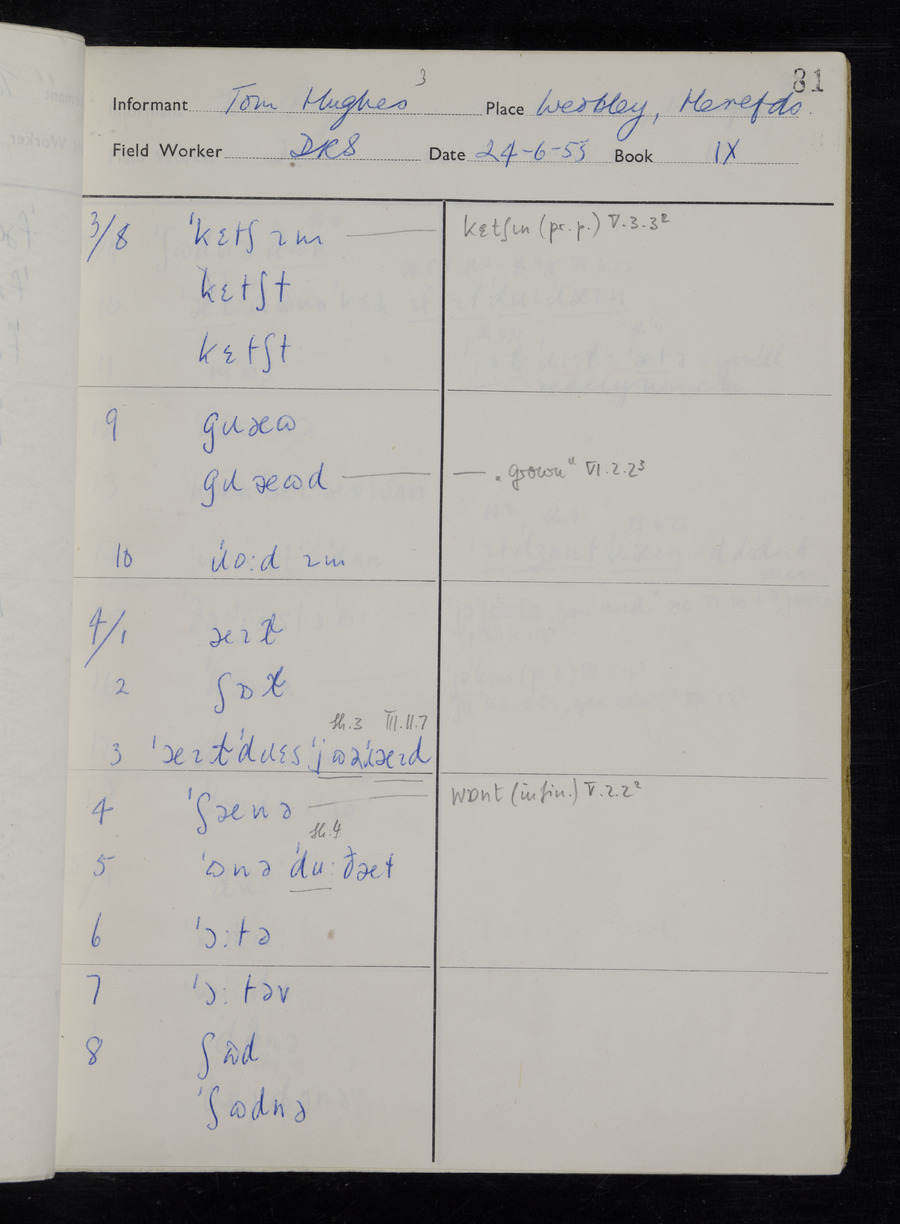 31
3
Informant Tom Hughes Place Weobley, Herefds.
Field Worker DRS Date 24-6-53 Book IX
3/8 ˈkɛtʃ ɪm kɛtʃɪn (pr.p.) V.3.3²
kɛtʃt
kɛtʃt
9 gɹəɷ
gɹəɷd — „grown" VI.2.2³
10 ˈɹɒ:d ɪm
4/1
2
sh.3 III.11.7
3
4 ˈʃænə wɒnt (infin.) V.2.2²
sh.4
5 ˈɷnə ˈdu: ðæt
6 ˈɔ:tə
7 ˈɔ:təv
8 ʃɷd
ˈʃɷdnə